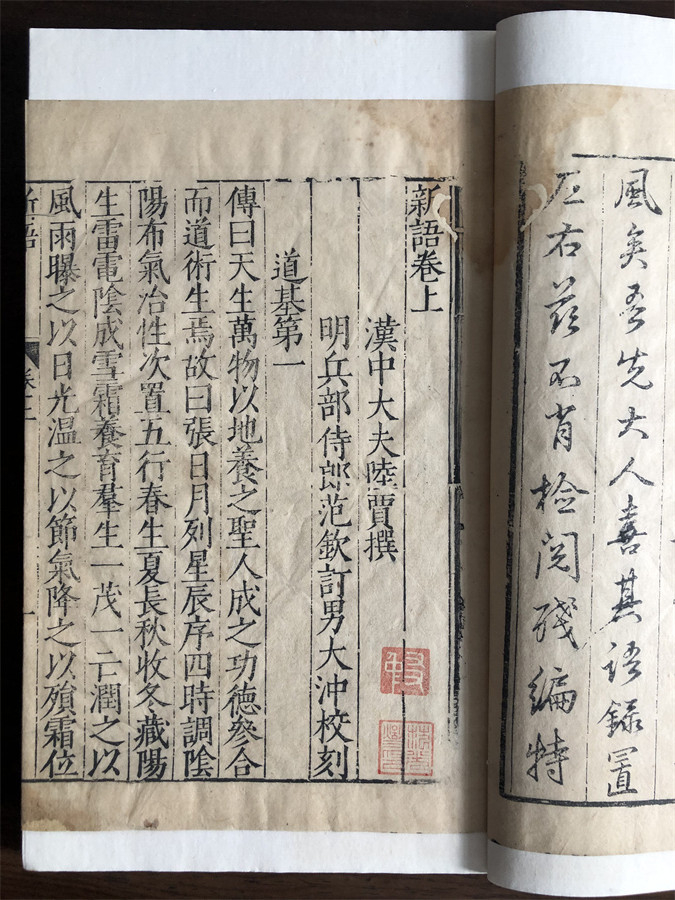 風矣吾先大人喜其語錄置
左右茲不肖檢閱殘編特
新語卷上
漢中大夫陸賈撰
明兵部侍郎范欽訂男大沖校刻
道基第一
傳曰天生萬物以地養之聖人成之功德參合
而道術生焉故曰張日月列星辰序四時調陰
陽布氣治性次置五行春生夏長秋收冬藏陽
生雷電陰成雪霜養育羣生一茂一亡潤之以
風雨曝之以日光温之以節氣降之以殞霜位
新語
卷上
一